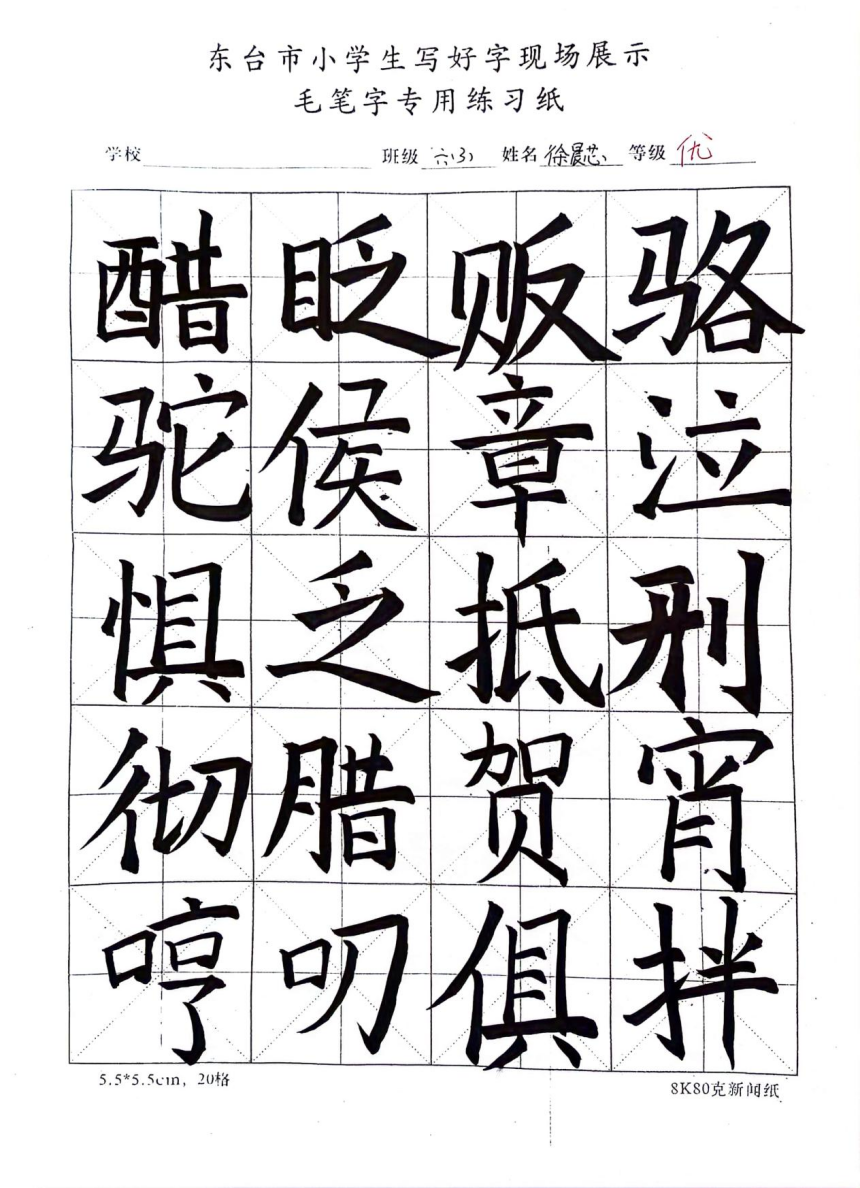 东台市小学生写好字现场展示
毛笔字专用练习纸
学校 班级 六(3) 姓名 徐晨芯 等级 优
醋 眨 贩 骆
驼 侯 章 泣
惧 乏 抵 刑
彻 腊 贺 宵
哼 叨 俱 拌
5.5*5.5cm，20格 8K80克新闻纸